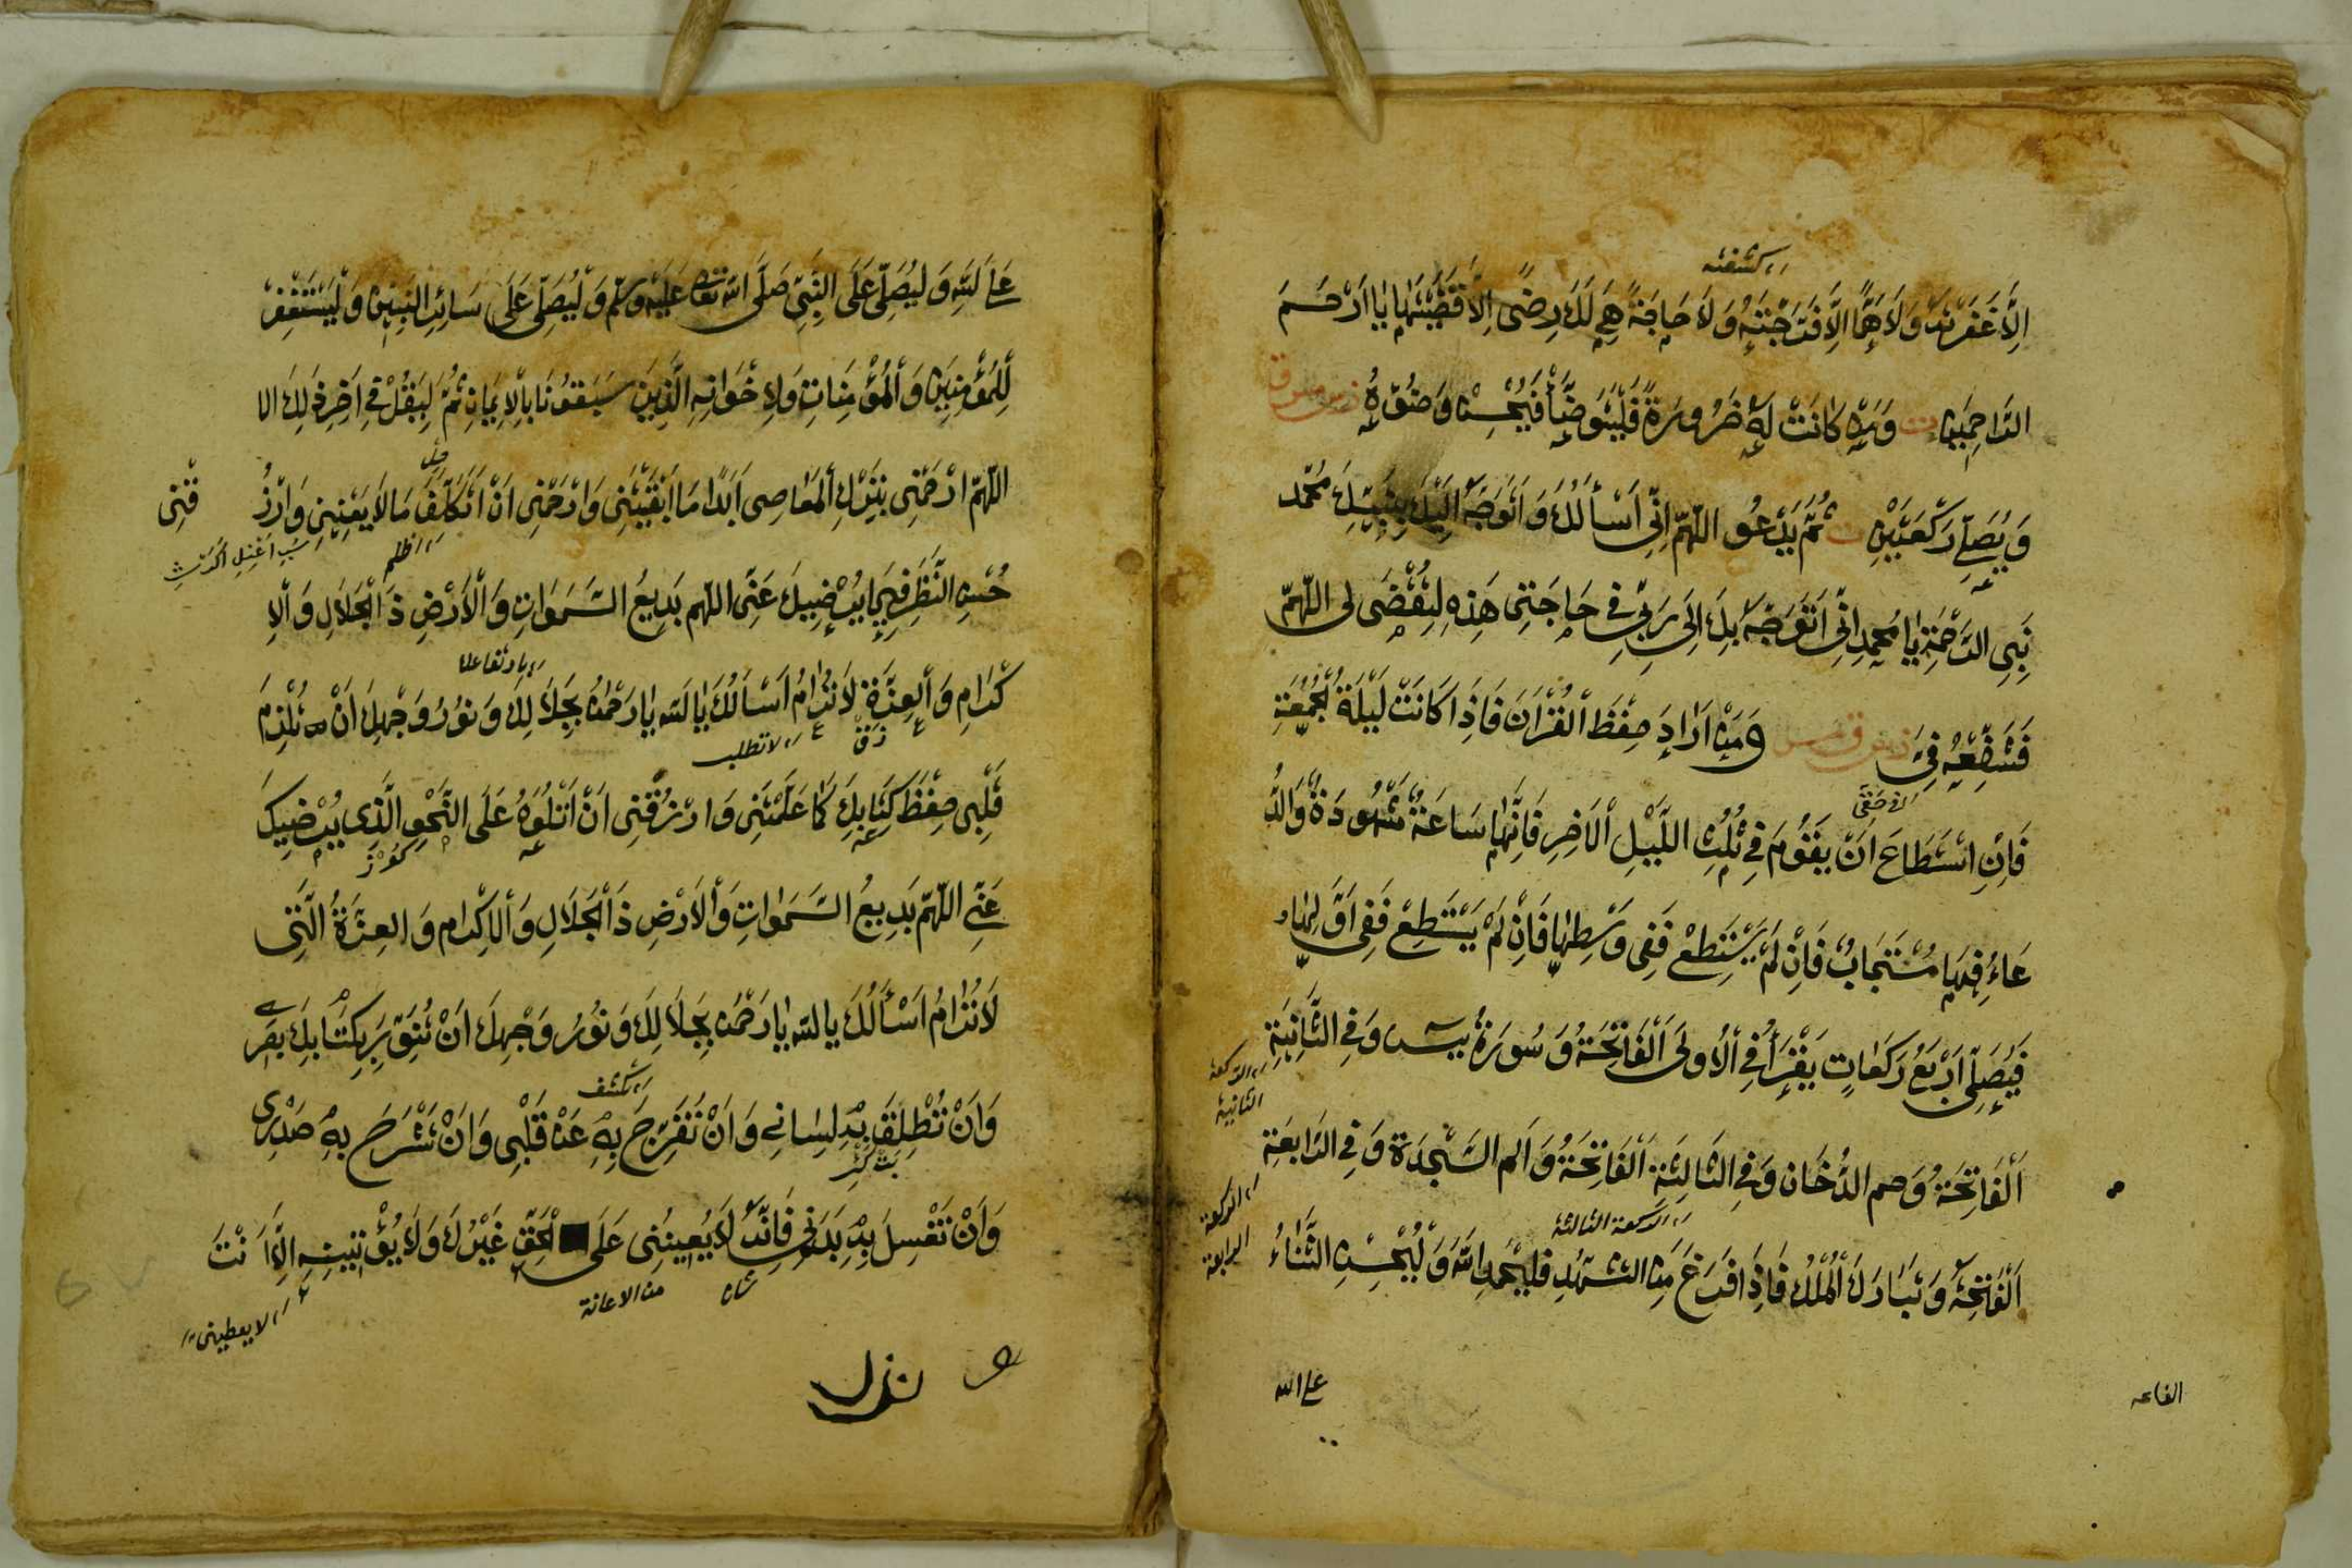 كشفته
اِلَّا غَفَرْتَهُ وَلَا هَمًّا اِلَّا فَرَّجْتَهُ وَلَا حَاجَةً هِيَ لَكَ رِضًى اِلَّا قَضَيْتَهَا يَا اَرْحَمَ
الرَّاحِمِينَ ت وَمَنْ كَانَتْ لَهُ ضَرُورَةً فَلْيَتَوَضَّأْ فَيُحْسِنْ وَضُوءَهُ
وَيُصَلِّي رَكْعَتَيْنِ ثُمَّ يَدْعُو اللّٰهُمَّ اِنِّي اَسْأَلُكَ وَاَتَوَجَّهُ اِلَيْكَ بِنَبِيِّكَ مُحَمَّد
نَبِيِّ الرَّحْمَةِ يَا مُحَمَّد اِنِّي اَتَوَجَّهُ بِكَ اِلَى رَبِّي فِي حَاجَتِي هَذِهِ لِتُقْضَى لِي اللّٰهُمَّ
فَشَفِّعْهُ فِيَّ وَمَنْ اَرَادَ حِفْظَ الْقُرْاٰنَ فَاِذَا كَانَتْ لَيْلَةُ الْجُمُعَةِ
فَاِنِ اسْتَطَاعَ اَنْ يَقُومَ فِي ثُلُثِ اللَّيْلِ الْاٰخِرِ فَاِنَّهَا سَاعَةٌ مَشْهُودَةٌ وَالدُّ
عَاءُ فِيهَا مُسْتَجَابٌ فَاِنْ لَمْ يَسْتَطِعْ فَفِي وَسْطِهَا فَاِنْ لَمْ يَسْتَطِعْ فَفِي اَوَّلِهَا
فَيُصَلِّي اَرْبَعُ رَكَعَاتٍ يَقْرَأُ فِي الْاُولَى الْفَاتِحَةُ وَسُورَةُ يٰسٓ وَفِي الثَّانِيَةِ
الركعة الثانية
اَلْفَاتِحَةُ وَحم الدُّخَان وَفِي الثَّالِثَةِ الْفَاتِحَةُ وَالم السَّجْدَة وَفِي الرَّابِعَةِ
الركعة الثالثة
الركعة الرابعة
اَلْفَاتِحَةُ وَتَبَارَكَ الْمُلْكُ فَاِذَا فَرَغَ مِنَ التَّشَهُّدِ فَلْيَحْمَدِ اللّٰهَ وَلْيُحْسِنِ الثَّنَاءُ
على الله
عَلَى اللّٰهِ وَلْيُصَلِّ عَلَى النَّبِيِّ صَلَّى اللّٰهُ تعالى عَلَيْهِ وَسَلَّمَ وَلْيُصَلِّي عَلَى سَائِرِ النَّبِيِّينَ وَلْيَسْتَغْفِرْ
لِلْمُؤْمِنِينَ وَالْمُؤْمِنَاتِ وَلِاِخْوَانِهِ الَّذِينَ سَبَقُونَا بِالْاِيمَانِ ثُمَّ لِيَقُلْ فِي اٰخِرِ ذَلِكَ
اللّٰهُمَّ ارْحَمْنِي بِتَرْكِ الْمَعَاصِي اَبَدًا مَا اَبْقَيْتَنِي وَارْحَمْنِي اَنْ اَتَكَلَّفَ مَا لَا يَعْنِينِي وَارْزُ قْنِي
حُسْنَ النَّظَرِ فِيمَا يُرْضِيكَ عَنِّي اللّٰهُمَّ بَدِيعُ السَّمَوَاتِ وَالْاَرْضِ ذَا الْجَلَالِ وَالْاِ
كْرَامِ وَالْعِزَّةِ لَا تُرَامُ اَسْأَلُكَ يَا اَللّٰهُ يَا رَحْمٰنُ بِجَلَالِكَ وَنُورُ وَجْهِكَ اَنْ تُلْزِمَ
لا تطلب
قَلْبِي حِفْظَ كِتَابِكَ كَمَا عَلَّمْتَنِي وَارْزُقْنِي اَنْ اَتْلُوَهُ عَلَى النَّحْوِ الَّذِي يُرْضِيكَ
عَنِّي اللّٰهُمَّ بَدِيعُ السَّمٰوَاتِ وَالْاَرْضِ ذَا الْجَلَالِ وَالْاِكْرَامِ وَالْعِزَّةُ الَّتِي
لَا تُرَامُ اَسْأَلُكَ يَا اَللّٰهُ يَا رَحْمٰنُ بِجَلَالِكَ وَنُورُ وَجْهِكَ اَنْ تُنَوِّرَ بِكِتَابِكَ بَصَرِي
تكشف
وَاَنْ تُطْلِقَ بِهِ لِسَانِي وَاَنْ تُفَرِّجَ بِهِ عَنْ قَلْبِي وَاَنْ تَشْرَحَ بِهِ صَدْرِي
وَاَنْ تَغْسِلَ بِهِ بَدَنِي فَاِنَّهُ لَا يُعِينُنِي عَلَى الْحَقِّ غَيْرُكَ وَلَا يُؤْتِيهِ اِلَّا اَنْتَ
شان
من الاعانة
لا يعطينى